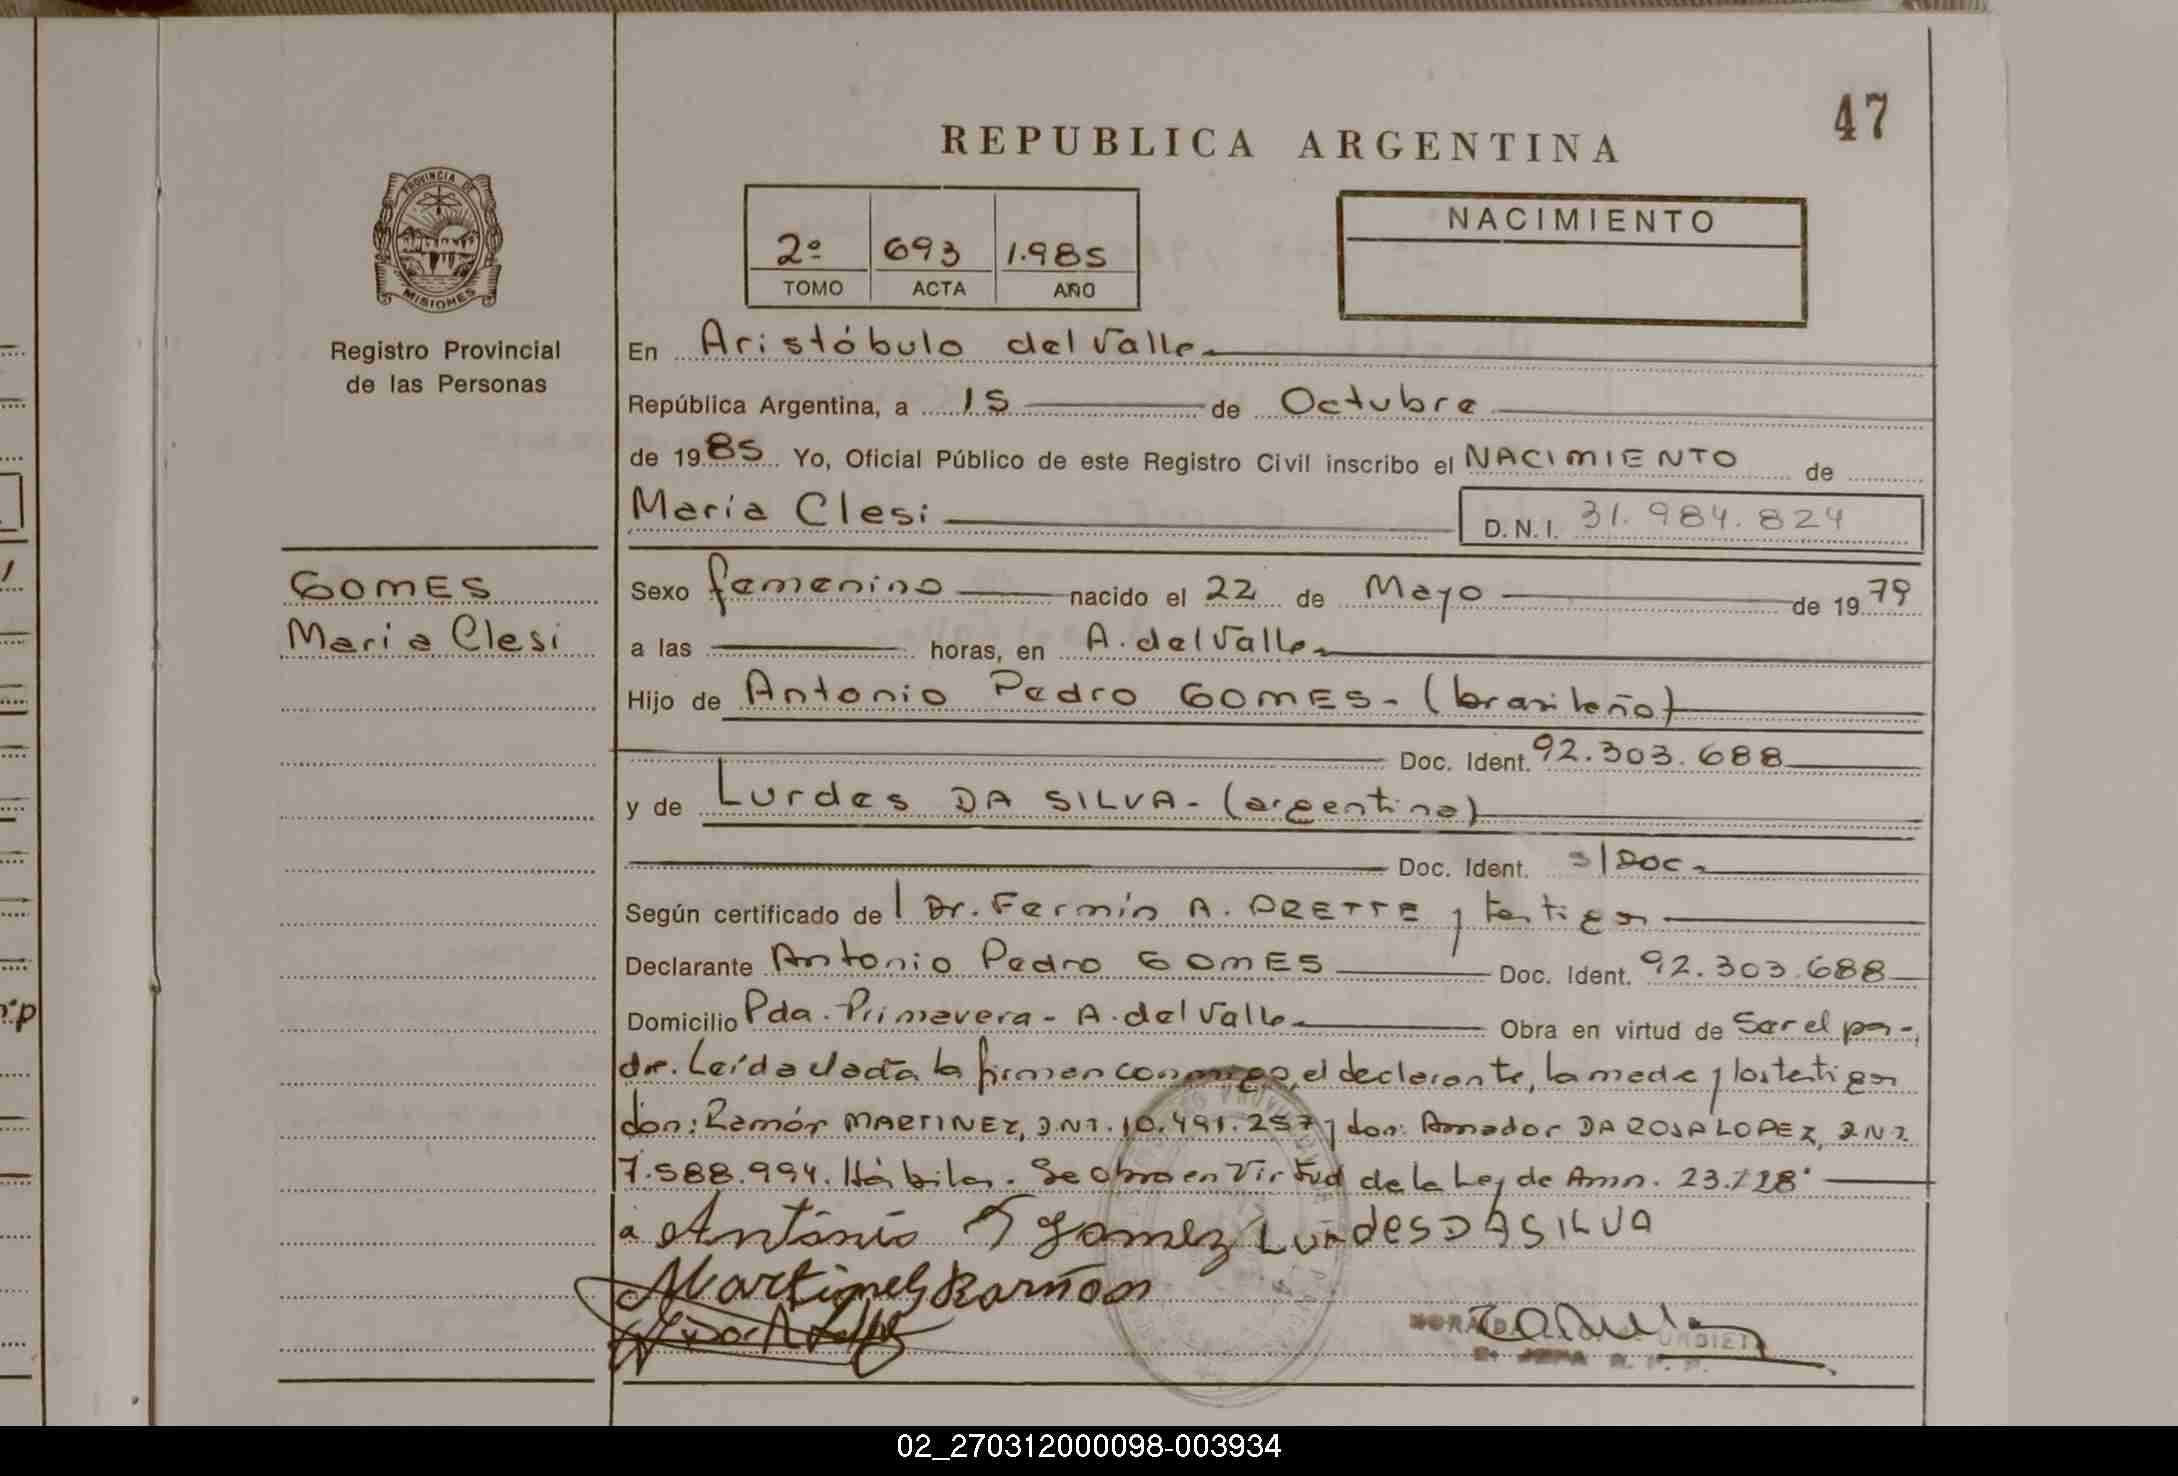 47
REPUBLICA ARGENTINA
PROVINCIA DE
MISIONES
2º 693 1.985
TOMO ACTA AÑO
NACIMIENTO
Registro Provincial
de las Personas
En Aristóbulo del Valle
República Argentina, a 15 de Octubre
de 1985 Yo, Oficial Público de este Registro Civil inscribo el NACIMIENTO de
María Clesi D.N.I. 31.984.824
GOMES
María Clesi
Sexo femenino nacido el 22 de Mayo de 1979
a las horas, en A. del Valle
Hijo de Antonio Pedro GOMES - (brasileño)
Doc. Ident. 92.303.688
y de Lurdes DA SILVA - (argentina)
Doc. Ident. S/Doc.
Según certificado de l Dr. Fermín A. ORETTE y testigos
Declarante Antonio Pedro GOMES Doc. Ident. 92.303.688
Domicilio Pda. Primavera - A. del Valle Obra en virtud de Ser el pa-
dre. Leída el acta la firman conmigo, el declarante, la madre y los testigos
don: Ramón MARTINEZ, D.N.I. 10.491.257 y don: Amador DA ROSA LOPEZ, D.N.I.
7.588.994. Hábiles. Se obra en Virtud de la Ley de Amn. 23.128
Antônio Gomez Lurdes DA SILVA
Martines Ramon
02_270312000098-003934